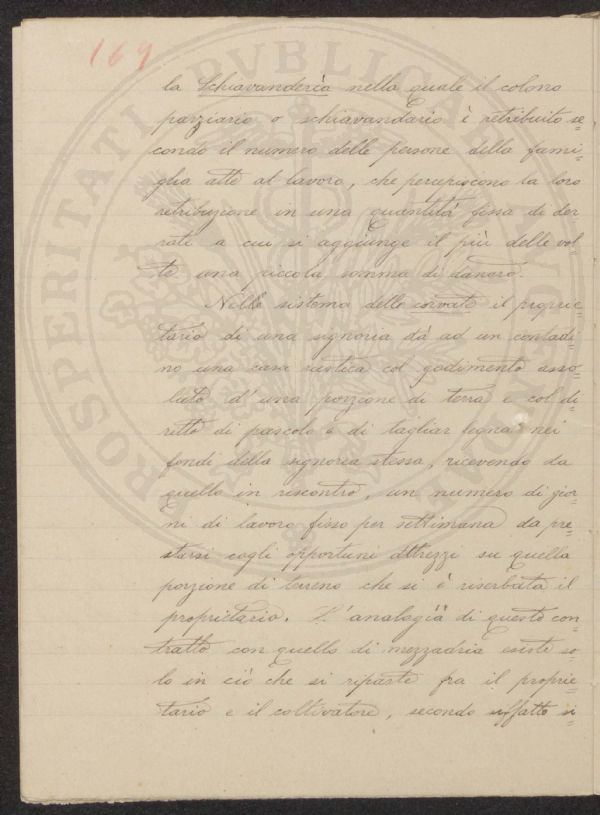 169
la Schiavanderia nella quale il colono
parziario o schiavandario è retribuito se=
condo il numero delle persone della fami=
glia atte al lavoro, che percepiscono la loro
retribuzione in una quantità fissa di der=
rate a cui si aggiunge il più delle vol=
te una piccola somma di danaro.
Nello sistema delle corvate il proprie=
tario di una signoria dà ad un contadi=
no una casa rustica col godimento asso=
luto d'una porzione di terra e col di=
ritto di pascolo e di tagliar legna nei
fondi della signoria stessa, ricevendo da
quello in riscontro, un numero di gior=
ni di lavoro fisso per settimana da pre=
starsi cogli opportuni attrezzi su quella
porzione di terreno che si è riserbata il
proprietario. L'analogia di questo con=
tratto con quello di mezzadria esiste so=
lo in ciò che si riparte fra il proprie=
tario e il coltivatore, secondo siffatto si=
PROSPERITATI PVBLICAE AVGENDAE